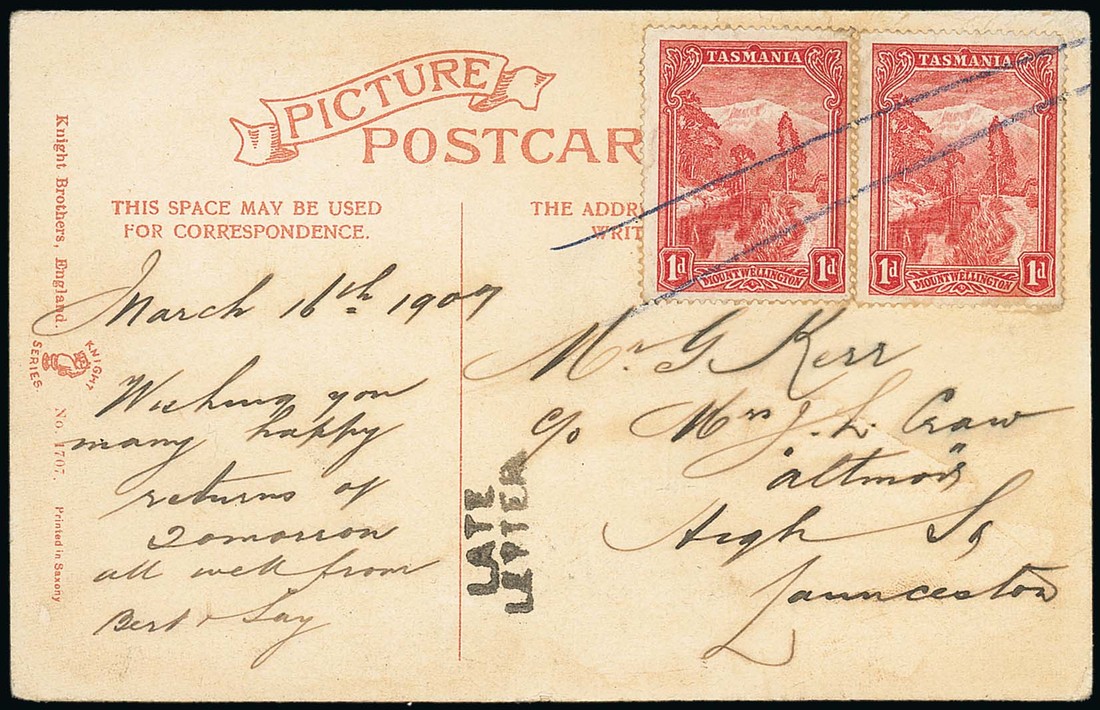 PICTURE
POSTCAR
THIS SPACE MAY BE USED
FOR CORRESPONDENCE.
THE ADDR
WRIT
TASMANIA
1d 1d
MOUNT WELLINGTON
TASMANIA
1d 1d
MOUNT WELLINGTON
Knight Brothers, England.
KNIGHT
SERIES.
No. 1707.
Printed in Saxony
March 16th 1909
Wishing you
many happy
returns of
Tomorrow
all well from
Bert &
LATE
LETTER
Mr G Kerr
c/o Mrs J. L. Craw
High St
Launceston